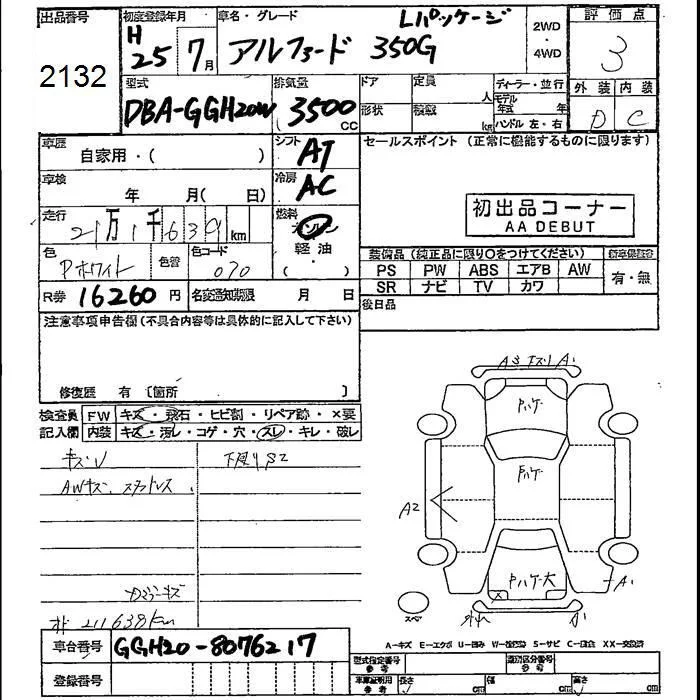 出品番号
2132
初度登録年月
H
25年7月
車名・グレード
Lパッケージ
アルファード 350G
2WD
・
4WD
評価点
3
外装 内装
D C
型式
DBA-GGH20W
排気量
3500
CC
ドア
形状
定員
人
積載
kg
ディーラー・並行
モデル
年式 年
ハンドル 左・右
車歴
自家用・( )
シフト
AT
車検
年 月( 日)
冷房
AC
走行
21万1千639km
燃料
ガソリン
軽油
・
( )
色
Pホワイト
色替
色コード
070
R券 16260円
名変通知期限 月 日
セールスポイント (正常に機能するものに限ります)
初出品コーナー
AA DEBUT
装備品(純正品に限り○をつけてください)
新車保証書
PS PW ABS エアB AW
SR ナビ TV カワ
有・無
後日品
注意事項申告欄(不具合内容等は具体的に記入して下さい)
修復歴 有 〔箇所 〕
検査員 FW キズ・飛石・ヒビ割・リペア跡・×要
記入欄 内装 キズ・汚レ・コゲ・穴・スレ・キレ・破レ
キズV
下廻りS2
AWキズ、スタッドレス
211638km
A3 A1
Pハゲ
Pハゲ
A2
Pハゲ大
A1
スペ
車台番号 GGH20-8076217
登録番号
A－キズ E－エクボ U－凹み W－波修跡 S－サビ C－腐食 XX－交換済
型式指定番号
類別区分番号
車庫証明用 長さ cm 幅 cm 高さ cm